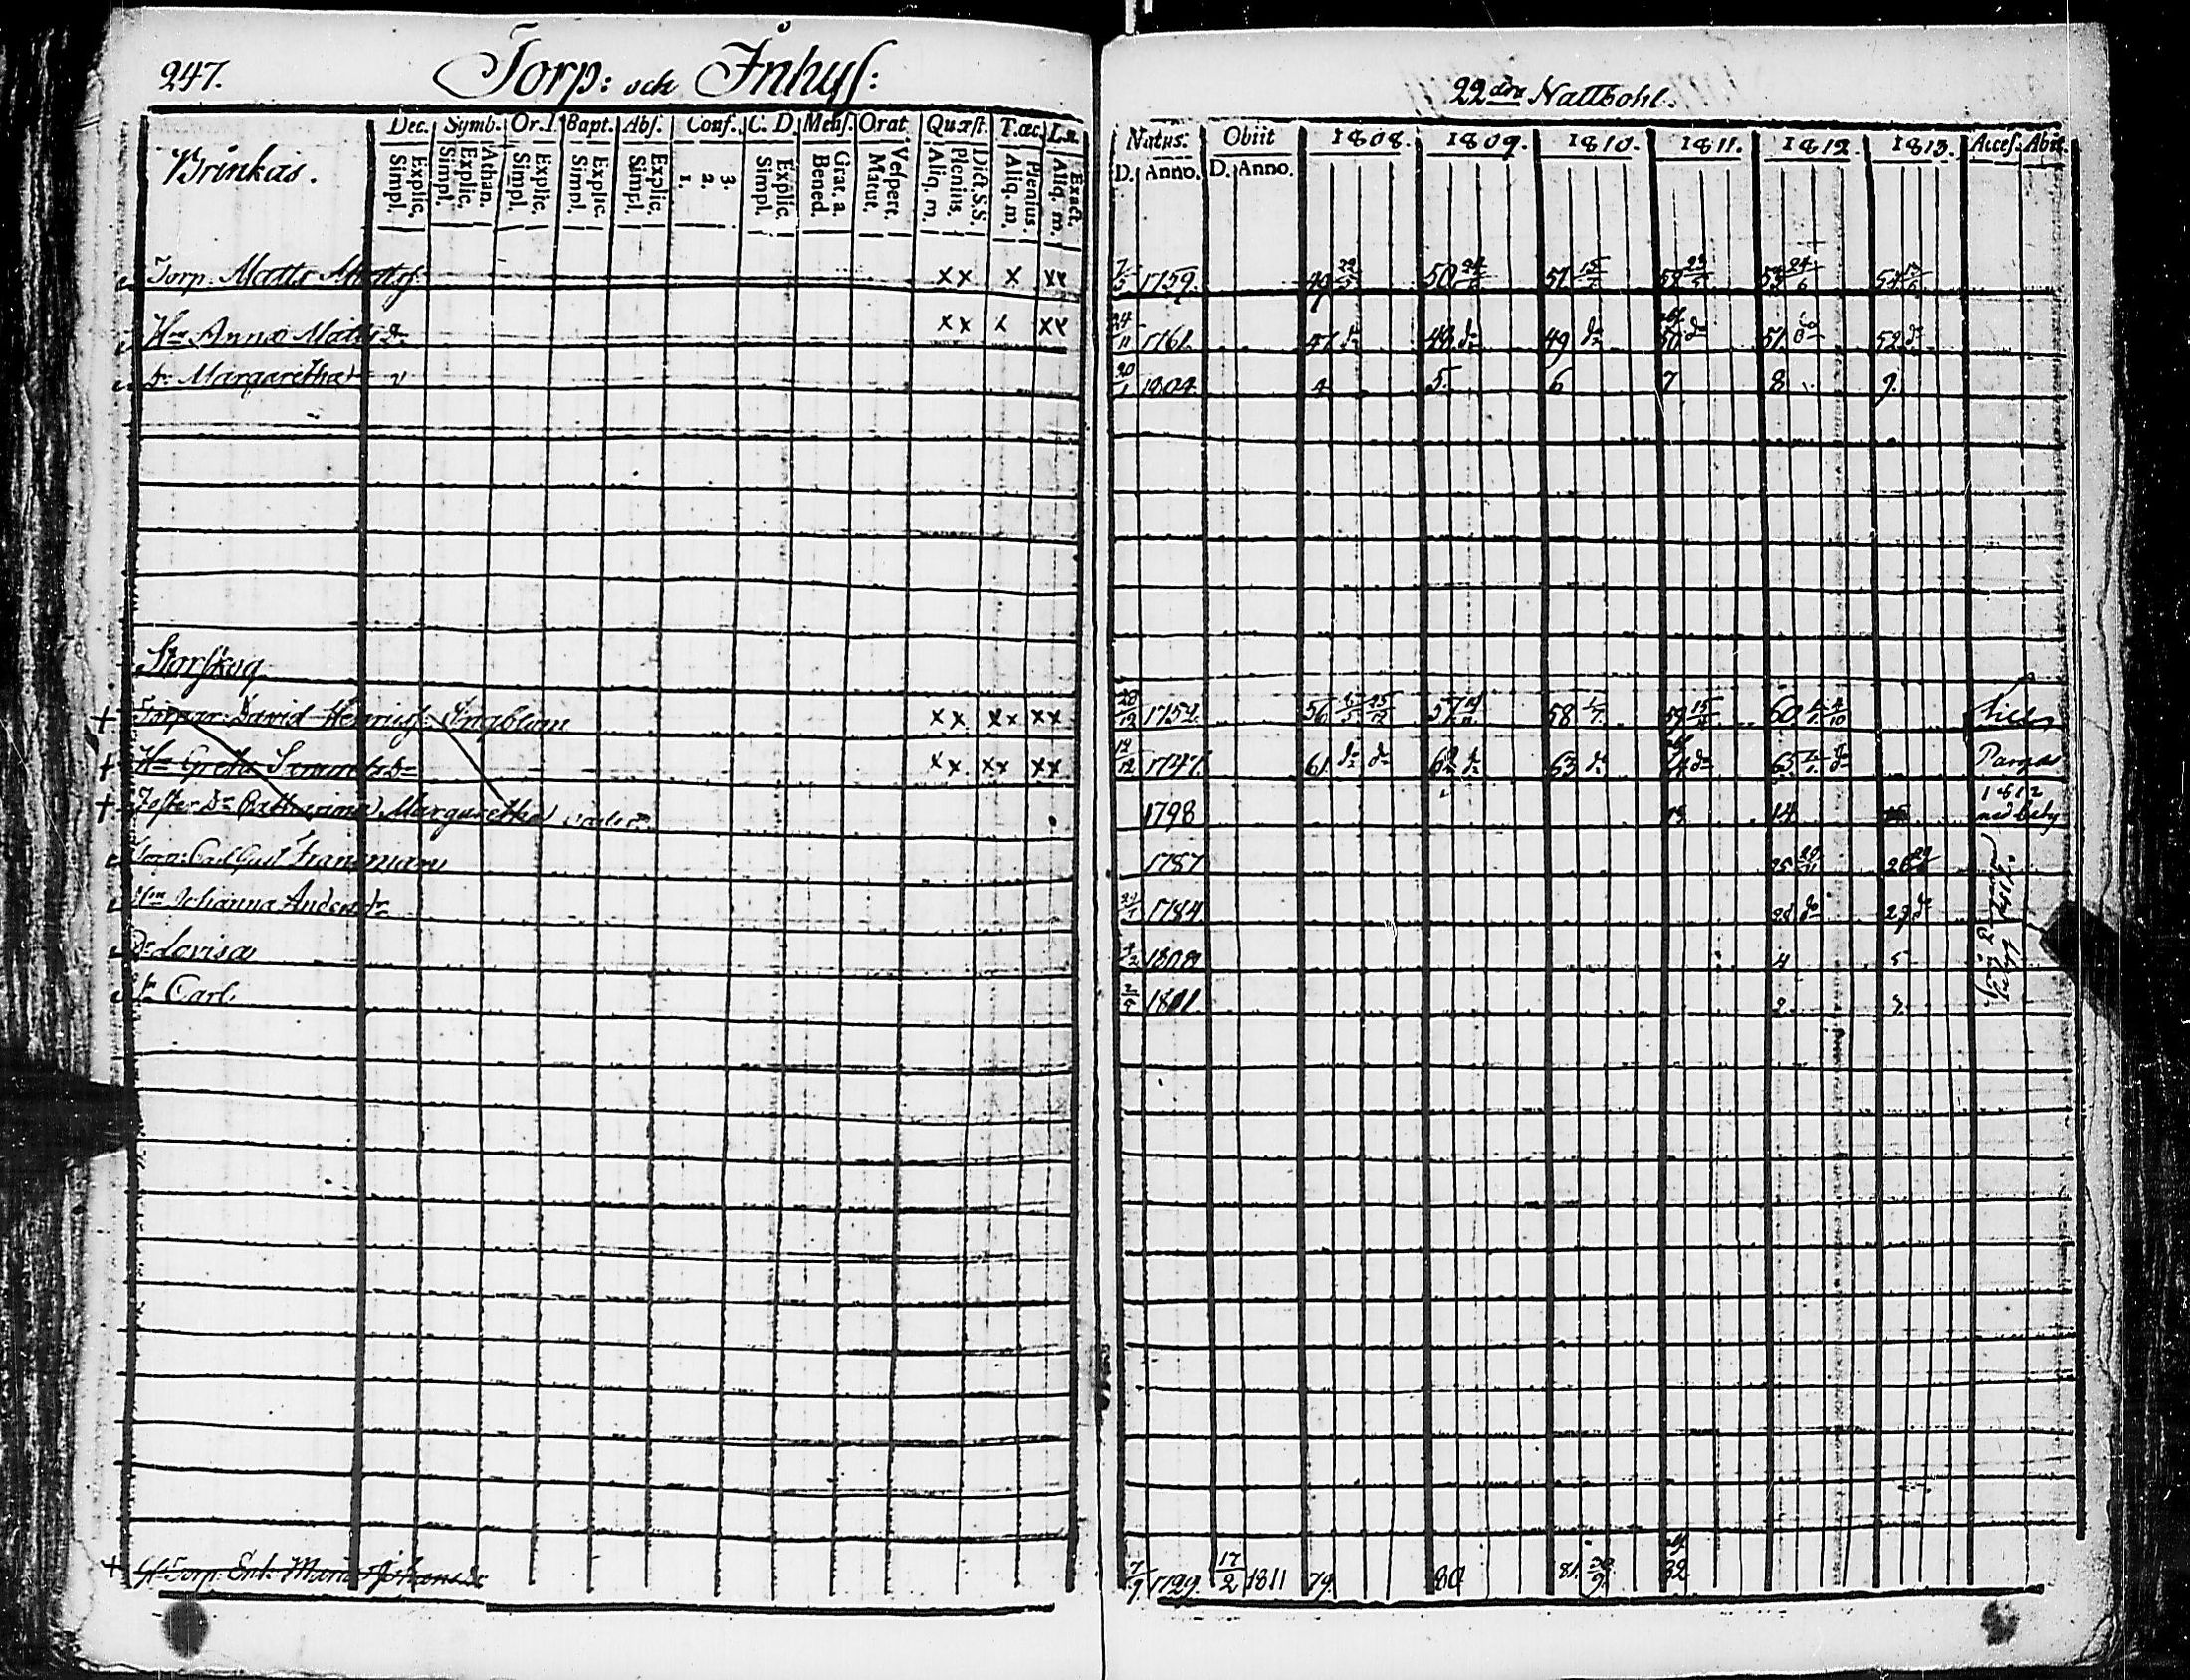 247. Torp: och Inhys:
Brinkas.
Dec. Symb. Or. D. Bapt. Abs. Conf. C. D. Mens. Orat. Quæst. T. œc. Ln.
Simpl. Explic. Simpl. Explic. Athan. Simpl. Explic. Simpl. Explic. Simpl. Explic. 1. 2. 3. Simpl. Explic. Bened. Grat. a. Matut. Vespert. Aliq. m. Plenius. Dict. S.S. Aliq. m. Plenius. Aliq. m. Exact.
Torp. Matts Mattss. xx x xx
Hu Anna Matts dr xx x xx
Dr Margaretha
Storskog
Torpar. David Henrics. Engblom xx xx xx
Hu Greta xx xx xx
Foster Dr Catharina Margaretha
Torp: Carl Gust Fransman
Hu Johanna Anders dr
Dr Lovisa
Sn Carl.
Torp. Enk. Maria Johans dr
22dra Nattbohl.
Natus. Obiit 1808. 1809. 1810. 1811. 1812. 1813. Access. Abit.
D. Anno. D. Anno.
1759. 49 50 51 52 53 54
24/11 1761. 47 do 48 do 49 do 50 do 51 do 52 do
20/1 1804. 4 5. 6 7 8 9.
1752. 56 57 58 59 60
12/12 1747. 61. do do 62 do 63 do 64 do 65 do
Pargas
1798 14
1812
med bety
1787 25 26
1784 28 do 29 do
1808 4 5
1811. 2. 3
7/9 1729. 17/2 1811 79. 80 81. 82